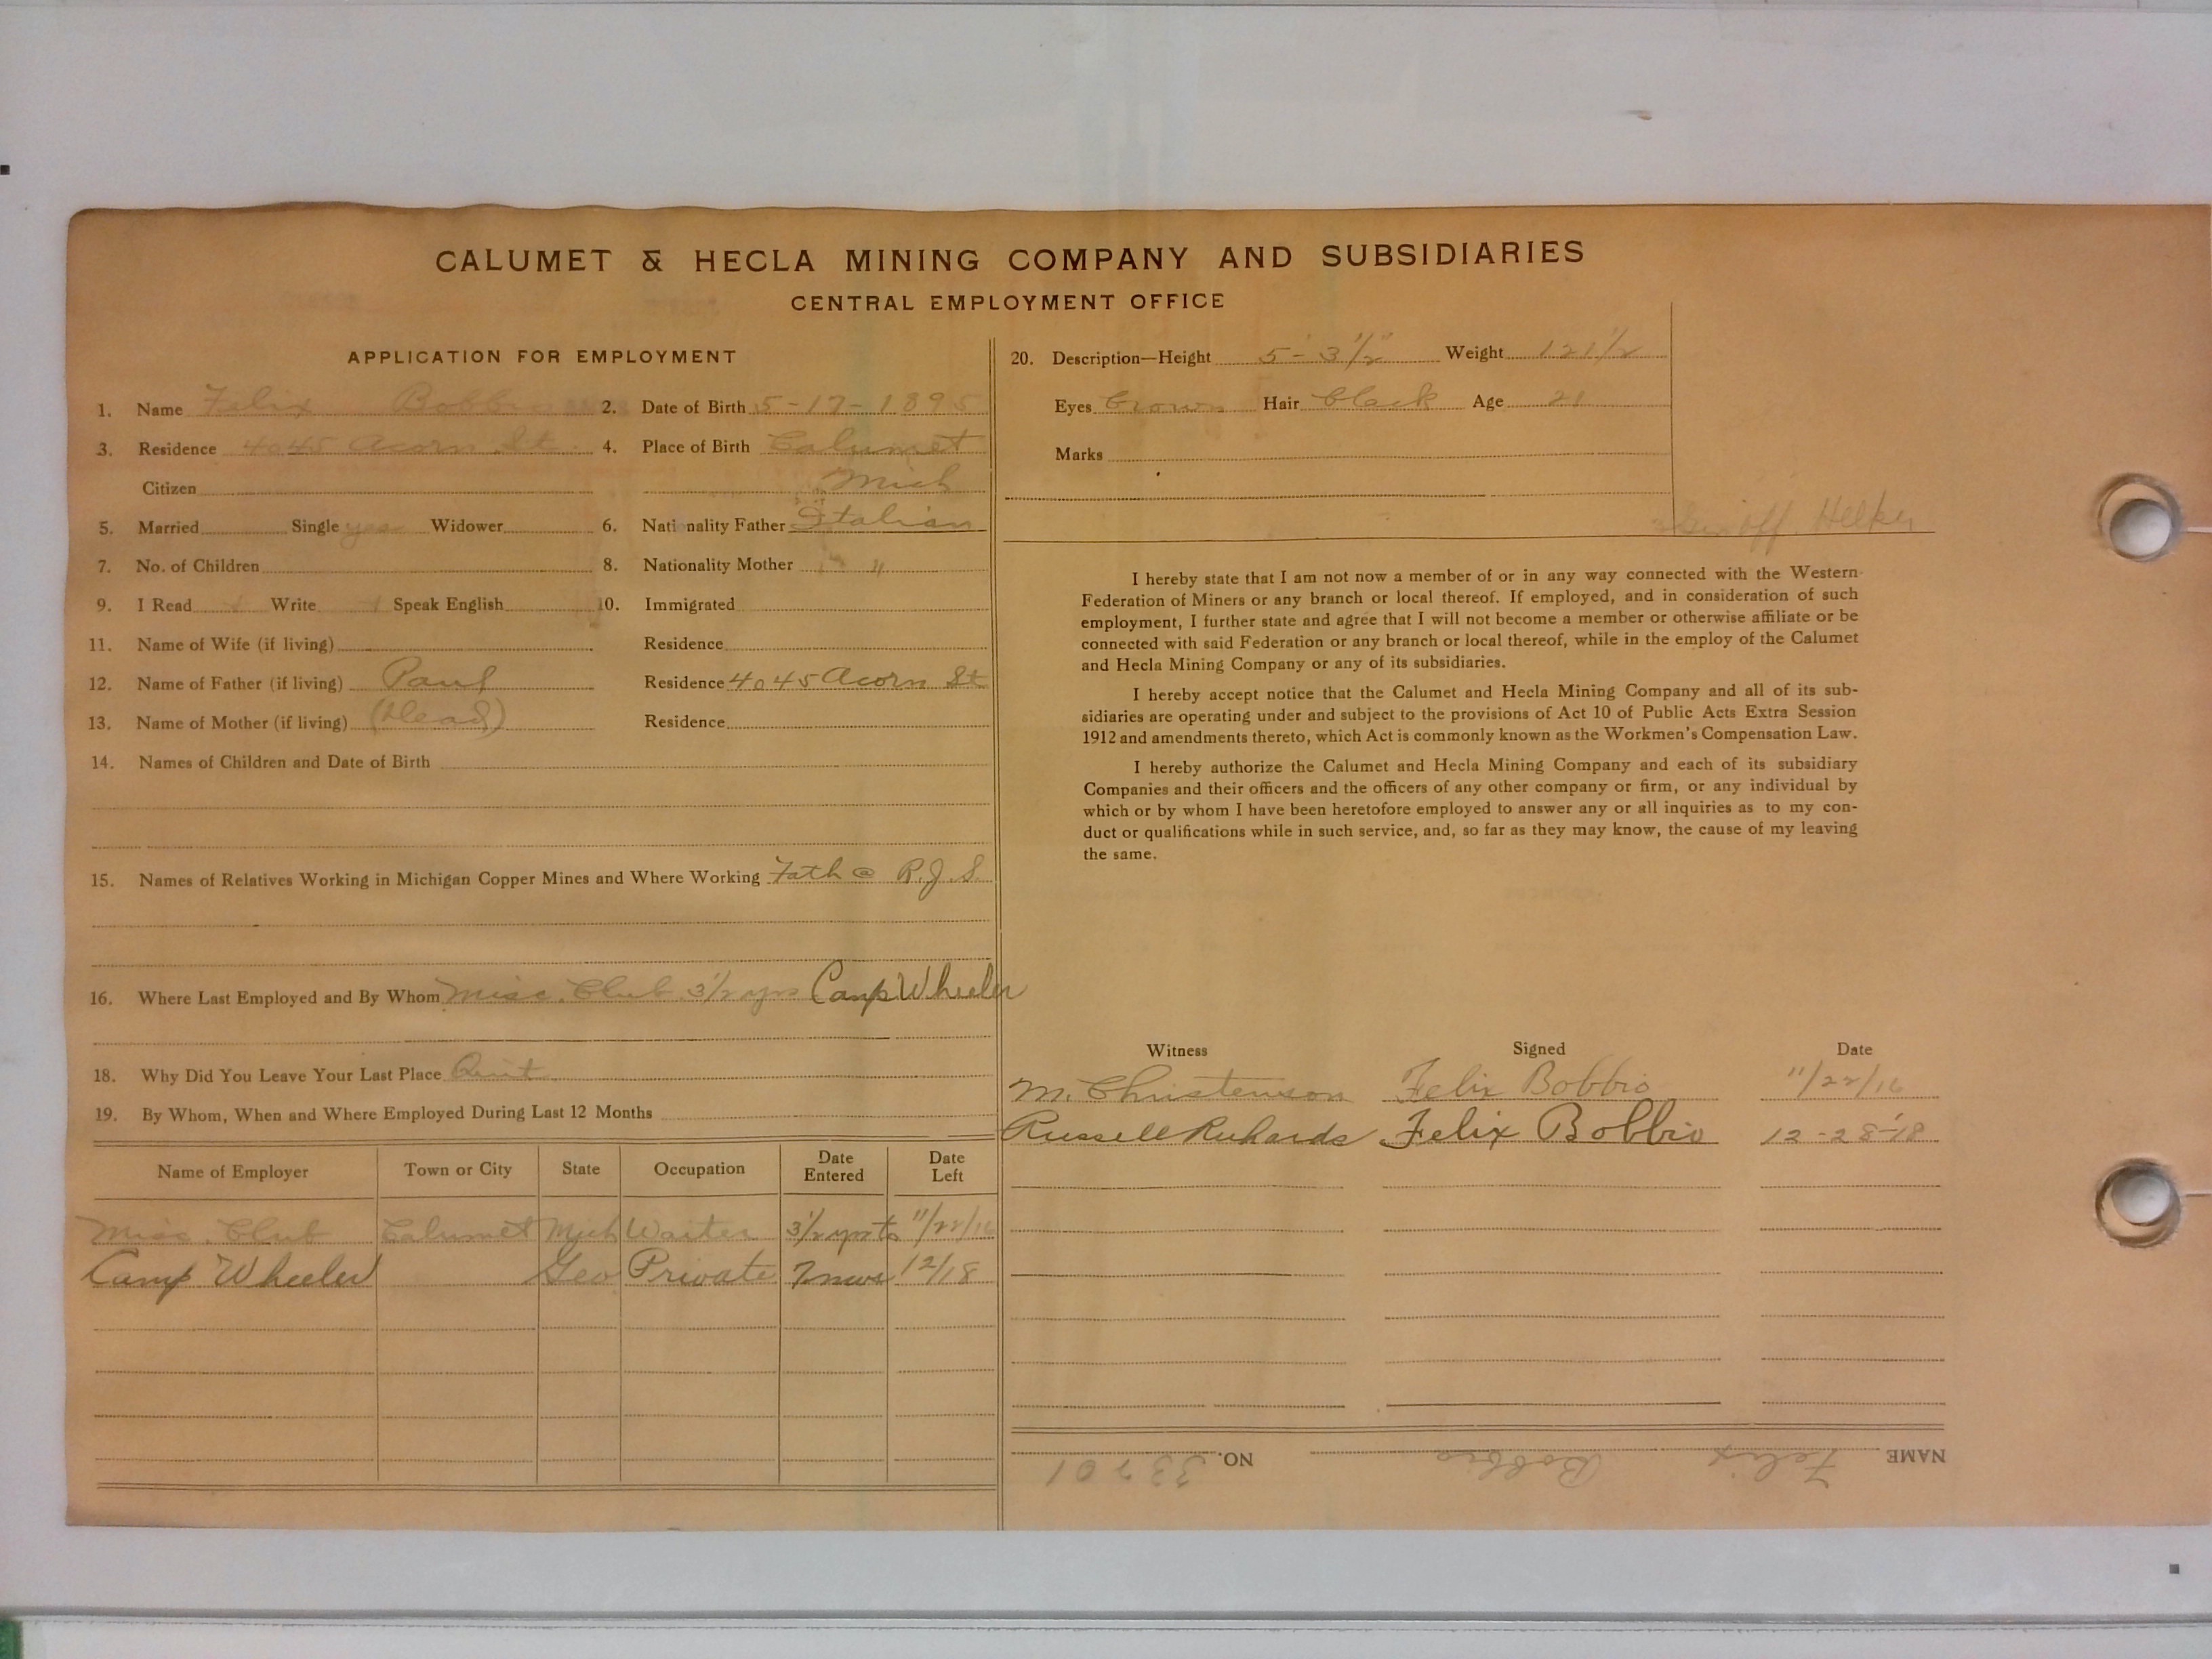 CALUMET & HECLA MINING COMPANY AND SUBSIDIARIES
CENTRAL EMPLOYMENT OFFICE
APPLICATION FOR EMPLOYMENT
1. Name Felix Bobbio 2. Date of Birth 5-17-1895
3. Residence 4045 Acorn St 4. Place of Birth Calumet
Citizen Mich
5. Married Single yes Widower 6. Nationality Father Italian
7. No. of Children 8. Nationality Mother " "
9. I Read Write Speak English 10. Immigrated
11. Name of Wife (if living) Residence
12. Name of Father (if living) Paul Residence 4045 Acorn St
13. Name of Mother (if living) (Dead) Residence
14. Names of Children and Date of Birth
15. Names of Relatives Working in Michigan Copper Mines and Where Working Fath @ R.J.S.
16. Where Last Employed and By Whom Misc. Club 3 1/2 yrs Camp Wheeler
18. Why Did You Leave Your Last Place Quit
19. By Whom, When and Where Employed During Last 12 Months
Name of Employer Town or City State Occupation Date Entered Date Left
Misc. Club Calumet Mich Waiter 3 1/2 yrs to 11/22/16
Camp Wheeler Geo Private 7 mos 12/18
20. Description—Height 5-3 1/2" Weight 121 1/2
Eyes brown Hair black Age 21
Marks
I hereby state that I am not now a member of or in any way connected with the Western
Federation of Miners or any branch or local thereof. If employed, and in consideration of such
employment, I further state and agree that I will not become a member or otherwise affiliate or be
connected with said Federation or any branch or local thereof, while in the employ of the Calumet
and Hecla Mining Company or any of its subsidiaries.
I hereby accept notice that the Calumet and Hecla Mining Company and all of its sub-
sidiaries are operating under and subject to the provisions of Act 10 of Public Acts Extra Session
1912 and amendments thereto, which Act is commonly known as the Workmen's Compensation Law.
I hereby authorize the Calumet and Hecla Mining Company and each of its subsidiary
Companies and their officers and the officers of any other company or firm, or any individual by
which or by whom I have been heretofore employed to answer any or all inquiries as to my con-
duct or qualifications while in such service, and, so far as they may know, the cause of my leaving
the same.
Witness Signed Date
M. Christenson Felix Bobbio 11/22/16
Russell Richards Felix Bobbio 12-28-18
NAME Felix Bobbio NO. 33701